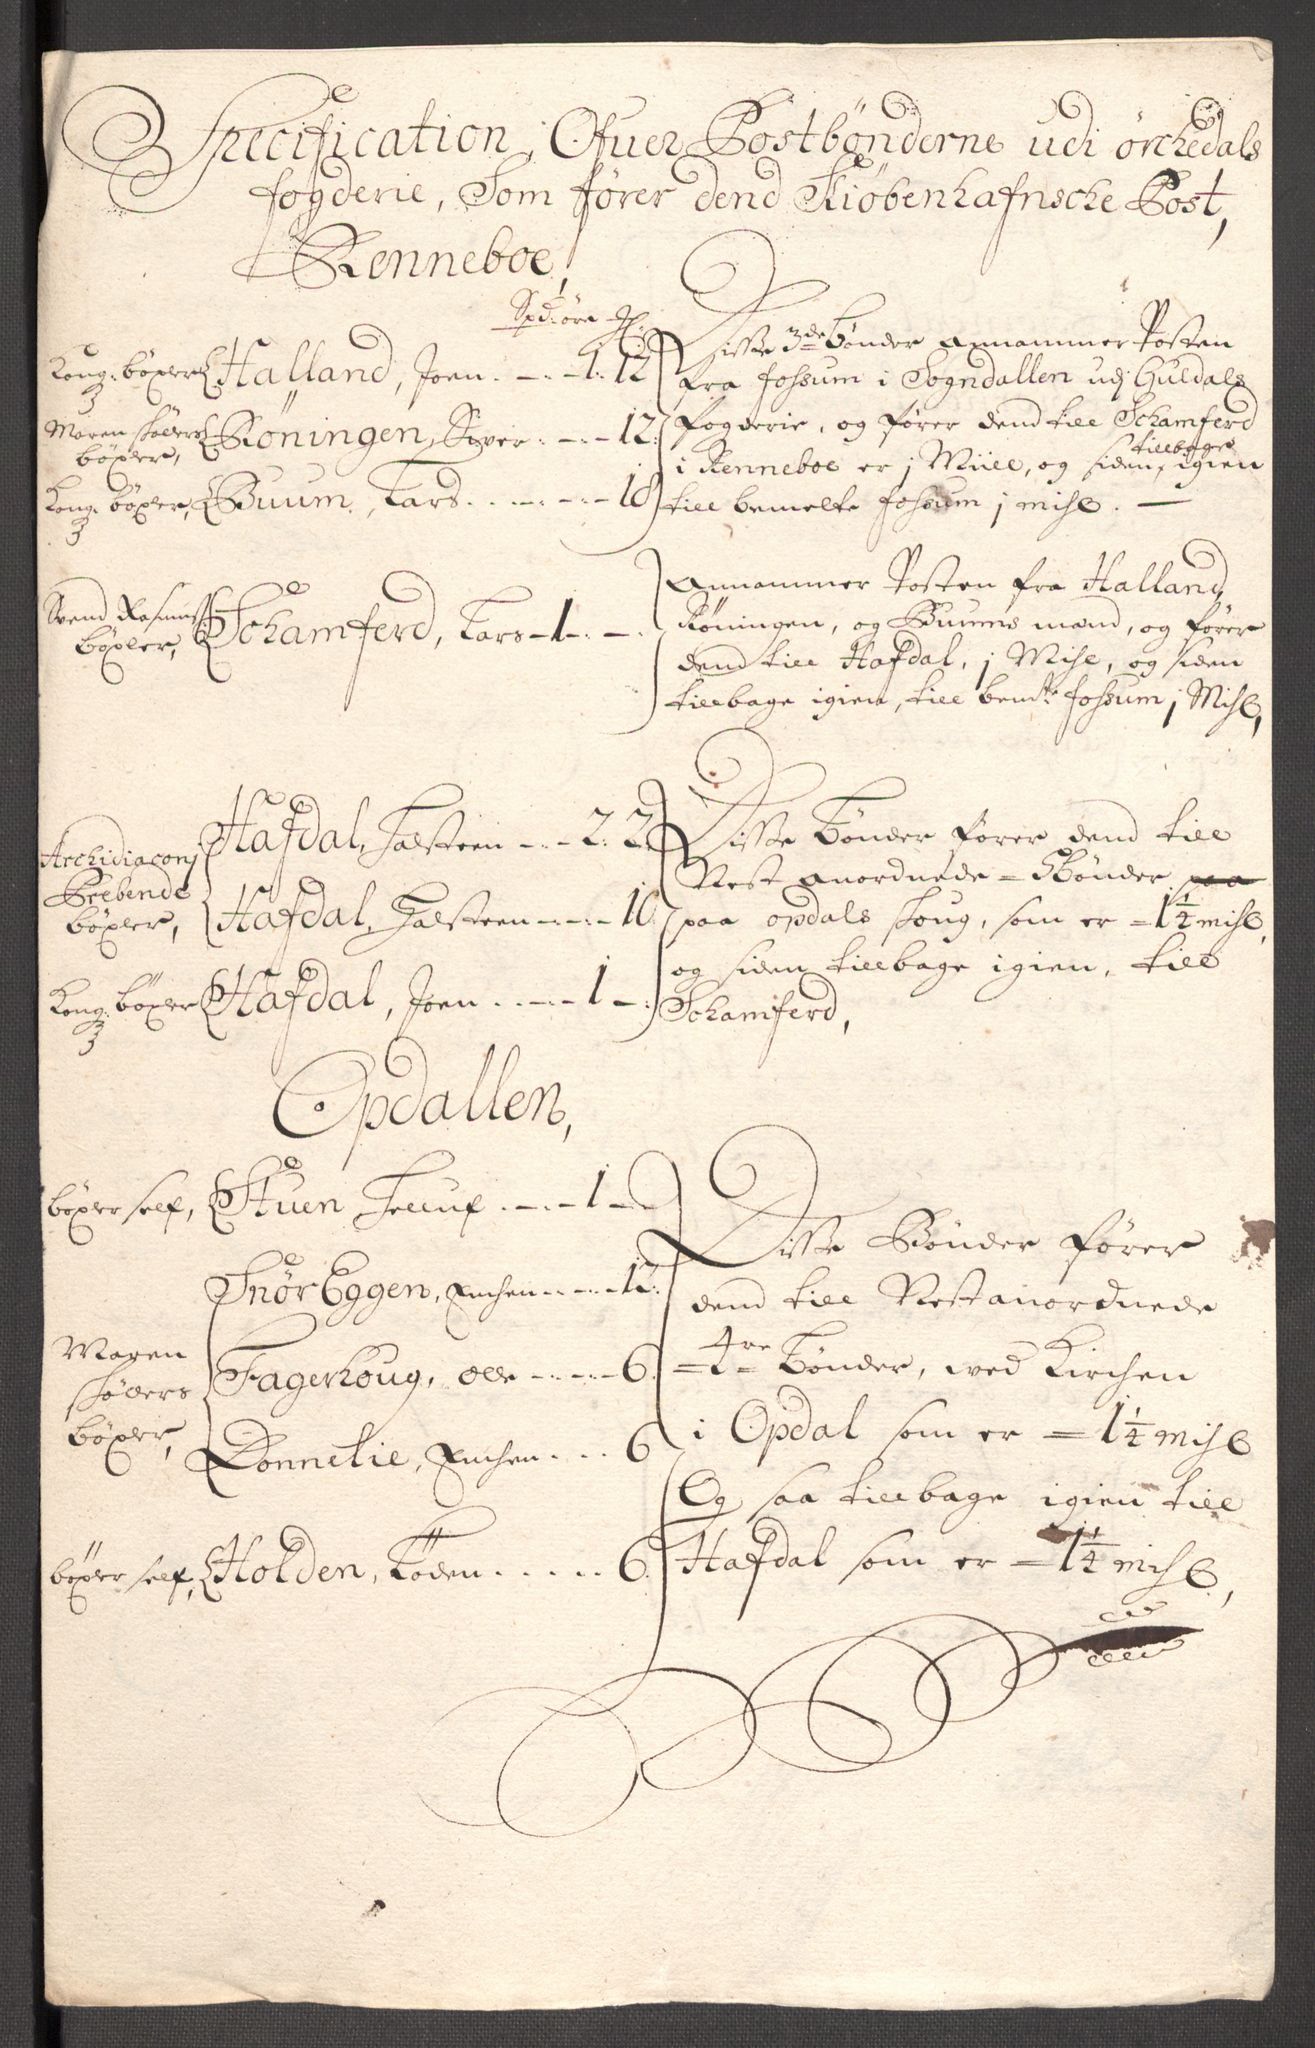 Specification, Ofuer Postbønderne udi ørchedals
fogderie, Som fører dend Kiøbenhafnsche Post,
Renneboe,
Spd: øre
Kong: böxler Halland, Joen . - . - 1. 12
Maren böxler, Röningen, Siver . - . - 12.
Kong: böxler, Buum, Lars . . - . - . - 18
Disse 3de bønder annammer Posten
fra Fossum i Sogndallen udj Guldals
fogderie, og fører dend till Schamferd
i Renneboe er j Miile, og siden tillbage igien
till bemelte Fossum j miil. —
Svend Rasmus
böxler, Schamferd, Lars - 1 - . - .
Annammer Posten fra Halland,
Röningen, og Buums mænd, og fører
dend till Hafdal, j Miil, og siden
tillbage igien, till bemte Fossum j Miil,
Archidiaconj
Prebende
böxler,
Hafdal, Halsteen - . - 2. 2.
Hafdal, Halsteen - . - . - 10.
Kong: böxler Hafdal, Joen . . - . - 1 - .
Disse bønder fører dend till
Nest anordnede = Bønder paa
paa opdals skoug, som er = 1 1/4 miil,
og siden tillbage igien, till
Schamferd,
Opdallen,
böxler self, Stuen . - . - . - 1 -
Maren
böxler,
SnørEggen, - . - . - 12.
Fagerhoug, Ole - . - . - 6.
Donnelie, . . . 6
böxler self, Holden, . . . . . 6.
Disse Bønder fører
dend till Nestanordnede
= 4re = bønder, wed Kirchen
i Opdal som er = 1 1/4 miil
Og saa tillbage igien till
Hafdal som er = 1 1/4 miil,